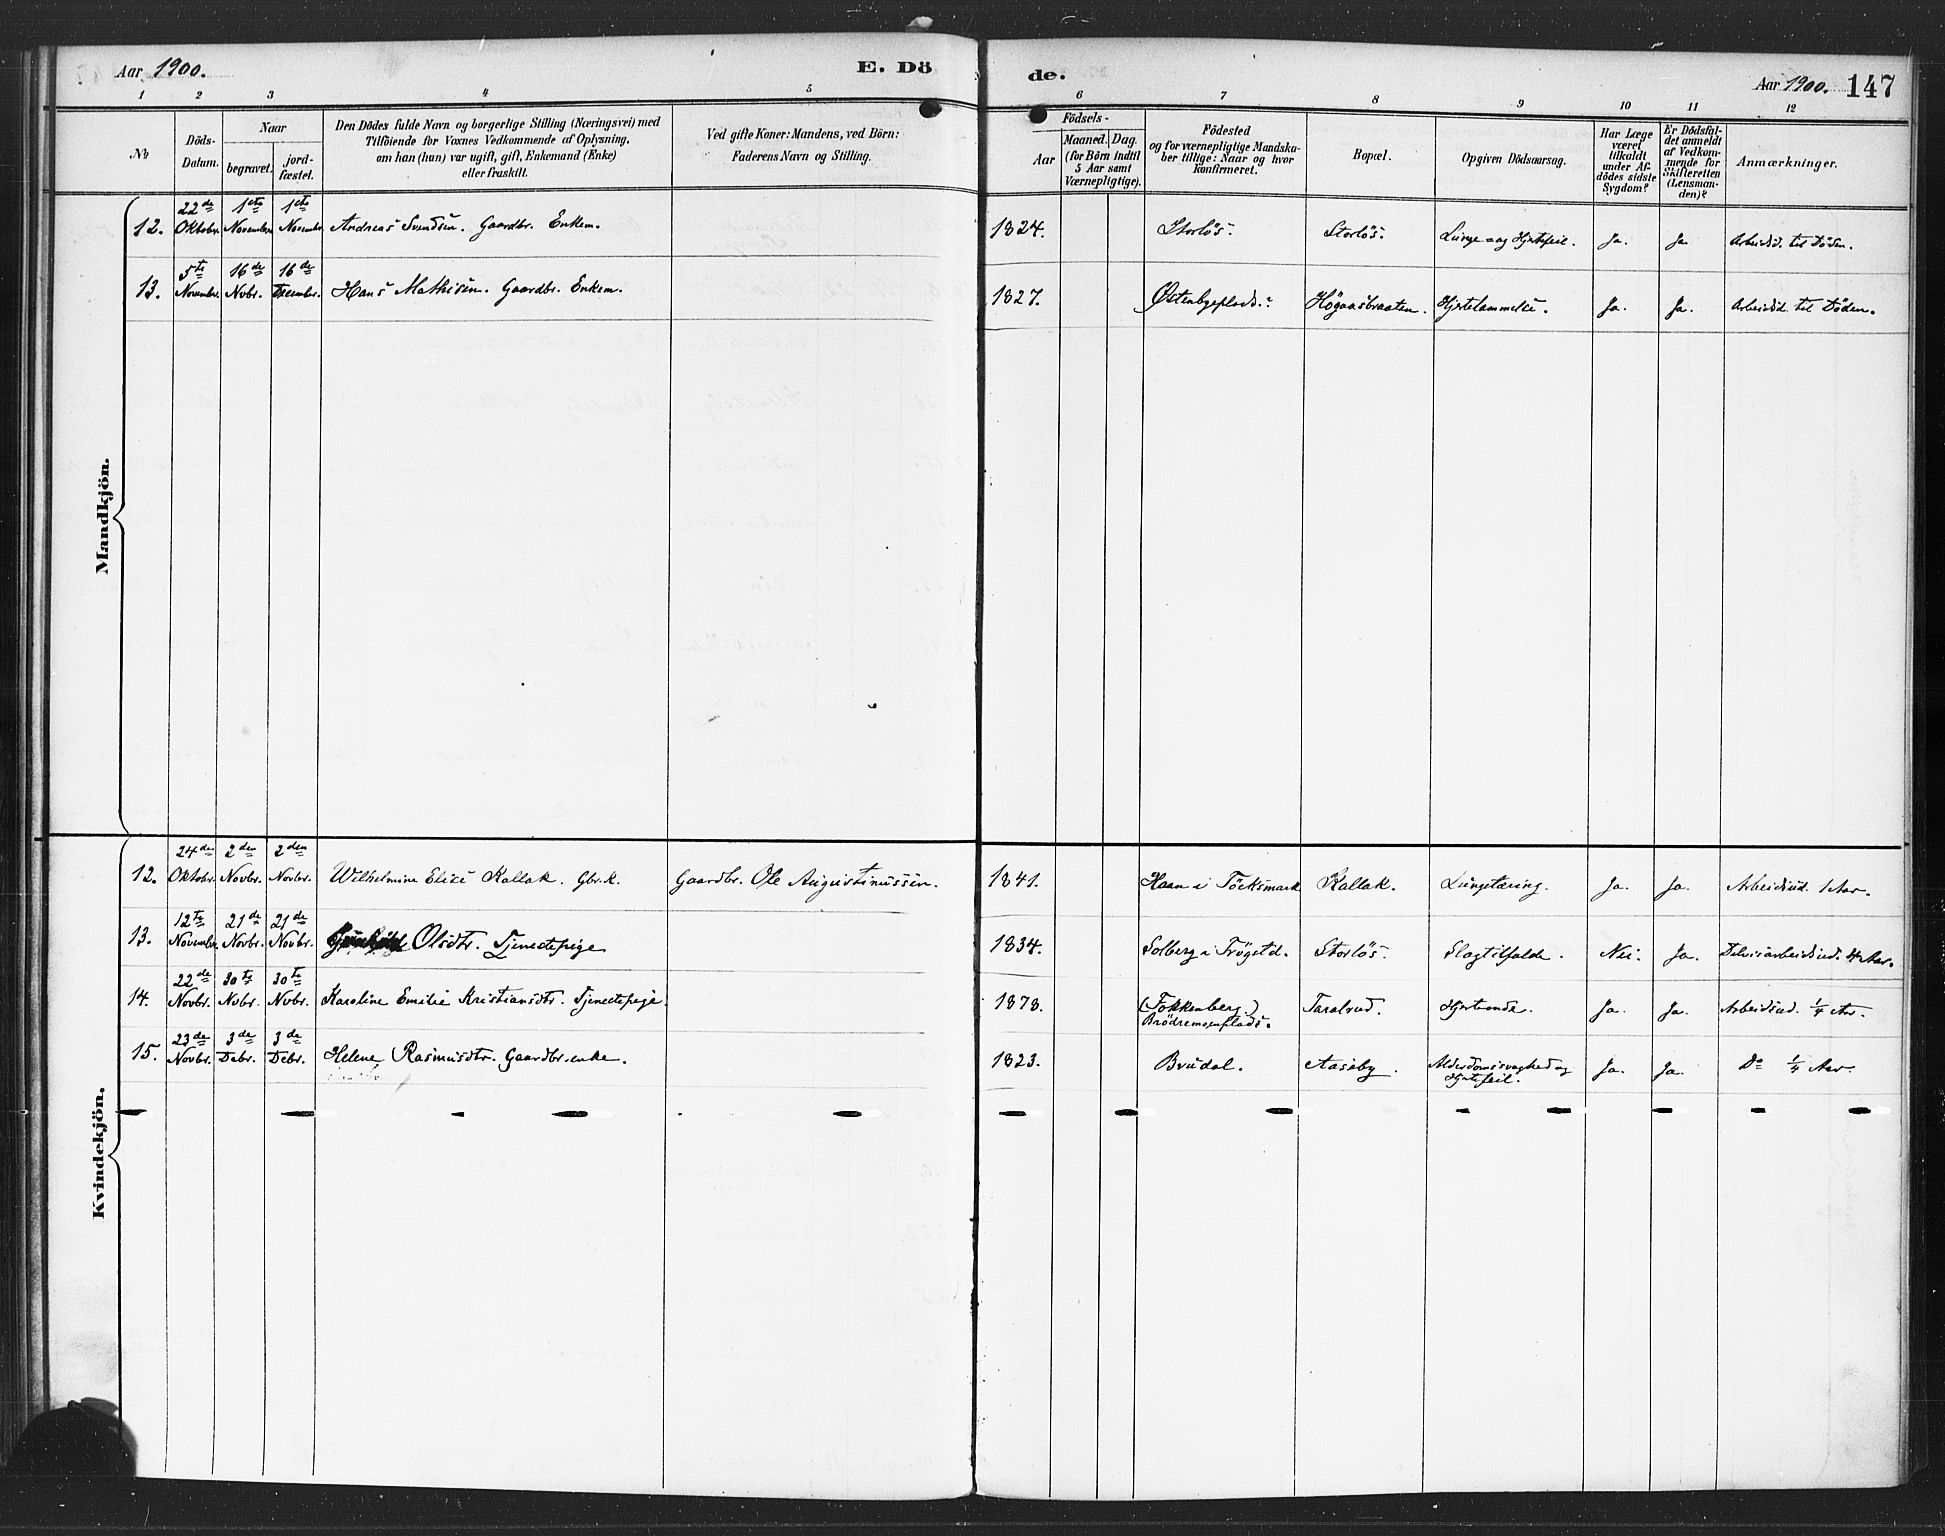 Aar 1900. E. Dö de. Aar 1900. 147
1 2 3 4 5 6 7 8 9 10 11 12
No
Döds-
Datum.
Naar
begravet.
jord-
fæstet.
Den Dödes fulde Navn og borgerlige Stilling (Næringsvei) med
Tilföiende for Voxnes Vedkommende af Oplysning,
om han (hun) var ugift, gift, Enkemand (Enke)
eller fraskilt.
Ved gifte Koner: Mandens, ved Börn:
Faderens Navn og Stilling.
Födsels-
Aar
Maaned. Dag.
(for Börn indtil
5 Aar samt
Værnepligtige).
Födested
og for værnepligtige Mandska-
ber tillige: Naar og hvor
konfirmeret.
Bopæl.
Opgiven Dödsaarsag.
Har Læge
været
tilkaldt
under Af-
dödes sidste
Sygdom?
Er Dödsfal-
det anmeldt
af Vedkom-
mende for
Skifteretten
(Lensman-
den)?
Anmærkninger.
Mandkjön.
22de 1ste 1ste
12. Oktober. November. Novembr. Andreas Svendsen. Gaardbr. Enkem. 1824. Storlös. Storlös. Lunge- og Hjertefeil. Ja. Ja. Arbeidsd. til Döden.
5te 16de 16de
13. Novembr. Nvbr. Decembr. Hans Mathisen. Gaardbr. Enkem. 1827. Østenbyeplads. Högaasbraaten. Hjertelammelse. Ja. Ja. Arbeidsd. til Döden.
Kvindekjön.
24de 2den 2den
12. Oktobr. Novbr. Novbr. Wilhelmine Elise Kallak. Gbr.k. Gaardbr. Ole Augustinussen. 1841. Haan i Töcksmark Kallak. Lungetæring. Ja. Ja. Arbeidsud. 1 Aar.
12te 21de 21de
13. November. Novbr. Novbr. Olsdtr. Tjenestepige 1834. Solberg i Trögstd. Storlös. Slagtilfælde. Nei. Ja. Delvis arbeidsud. 4 Aar.
22de 30te 30te
14. Novbr. Nvbr. Nvbr. Karoline Emilie Kristiansdtr. Tjenestepige. 1878. (Fokkenberg) Taralrud. Hjerteonde. Ja. Ja. Arbeidsud. 1/4 Ar.
Brödremosenplads.
23de 3de 3de
15. Novbr. Debr. Debr. Helene Rasmusdtr. Gaardbr.enke. 1823. Brudal. Aasäby. Alderdomssvaghed og Ja. Ja. Do 1/4 Aar.
Hjertefeil.